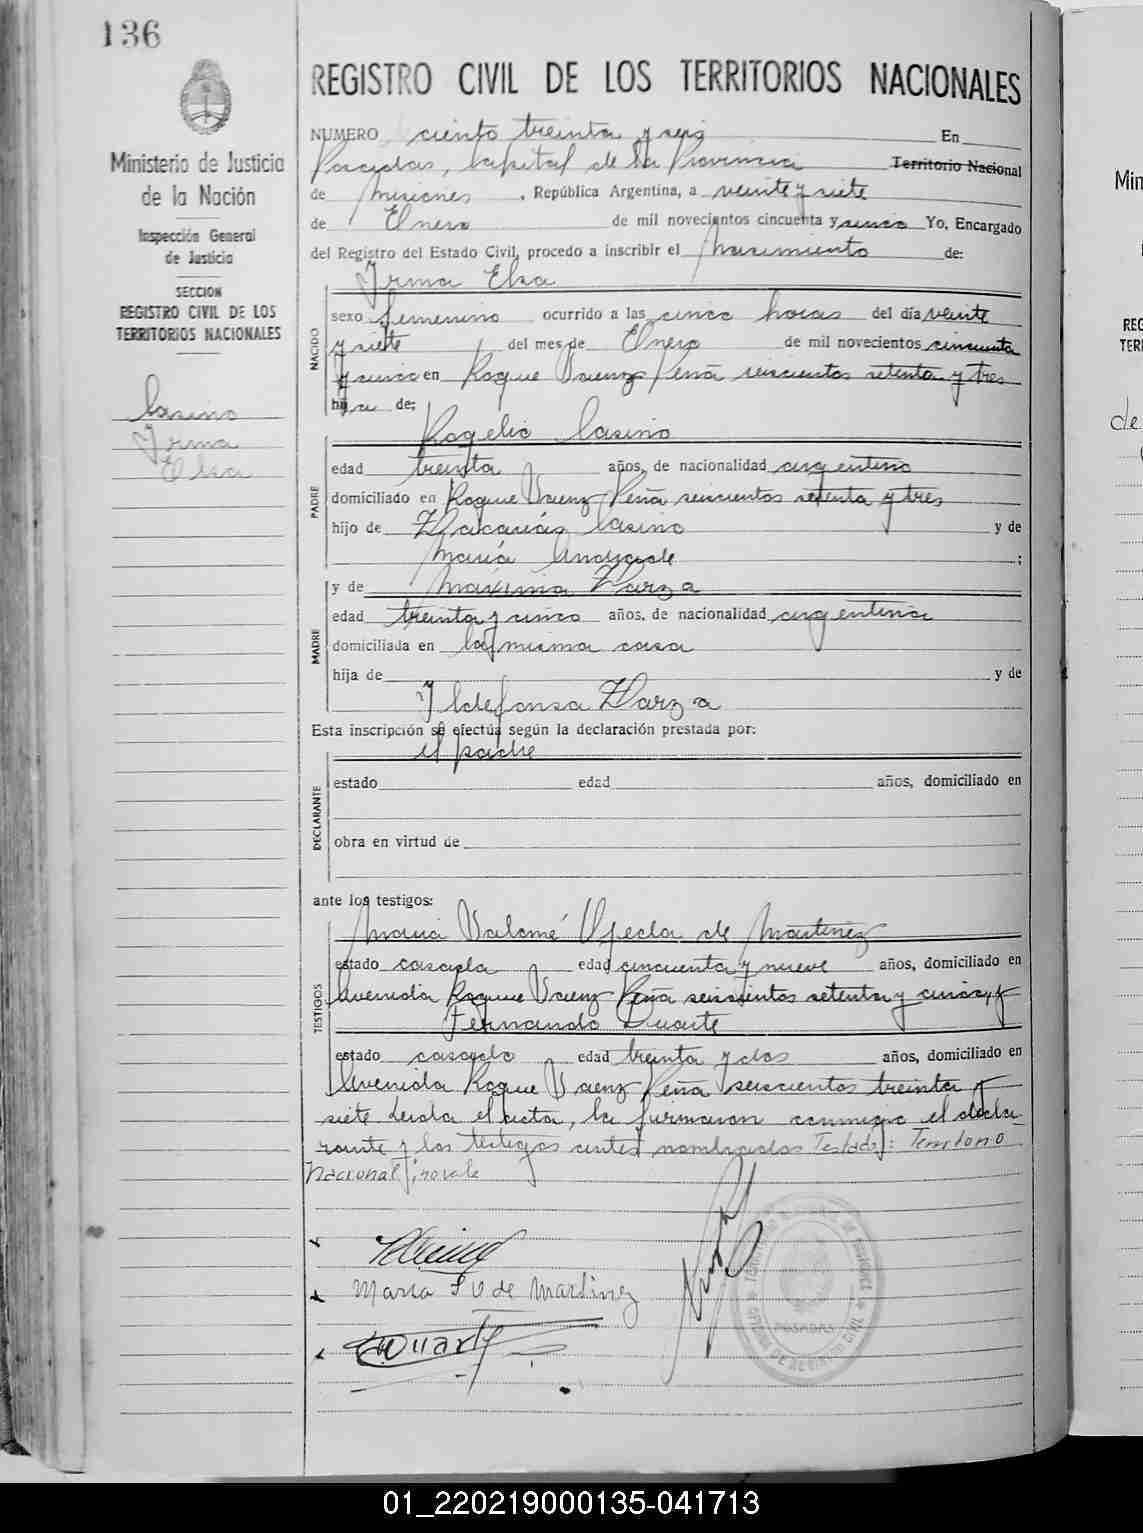 136
REGISTRO CIVIL DE LOS TERRITORIOS NACIONALES
Ministerio de Justicia
de la Nación
Inspección General
de Justicia
SECCION
REGISTRO CIVIL DE LOS
TERRITORIOS NACIONALES
Casino
Irma
Elsa
NUMERO ciento treinta y seis En
Posadas, Capital de la Provincia Territorio Nacional
de Misiones, República Argentina, a veinte y siete
de Enero de mil novecientos cincuenta y cinco Yo, Encargado
del Registro del Estado Civil, procedo a inscribir el Nacimiento de:
Irma Elsa
NACIDO
sexo femenino ocurrido a las cinco horas del día veinte
y siete del mes de Enero de mil novecientos cincuenta
y cinco en Roque Saenz Peña seiscientos setenta y tres
hija de:
Rogelio Casino
PADRE
edad treinta años, de nacionalidad argentino
domiciliado en Roque Saenz Peña seiscientos setenta y tres
hijo de Zacarías Casino y de
María Andrade ;
y de Maxima Zarza
MADRE
edad treinta y cinco años, de nacionalidad argentina
domiciliada en la misma casa
hija de y de
Ildefonsa Zarza
Esta inscripción se efectúa según la declaración prestada por:
el padre
DECLARANTE
estado edad años, domiciliado en
obra en virtud de
ante los testigos:
Maria Salomé Ojeda de Martinez
TESTIGOS
estado casada edad cincuenta y nueve años, domiciliado en
Avenida Roque Saenz Peña seiscientos setenta y cinco, y
Fernando Duarte
estado casado edad treinta y dos años, domiciliado en
Avenida Roque Saenz Peña seiscientos treinta y
siete. Leida el acta, la firmaron conmigo el decla-
rante y los testigos antes nombrados Testado: Territorio
Nacional; no vale
Maria S O de Martinez
Duarte
POSADAS
Min
REG
TERI
de
01_220219000135-041713